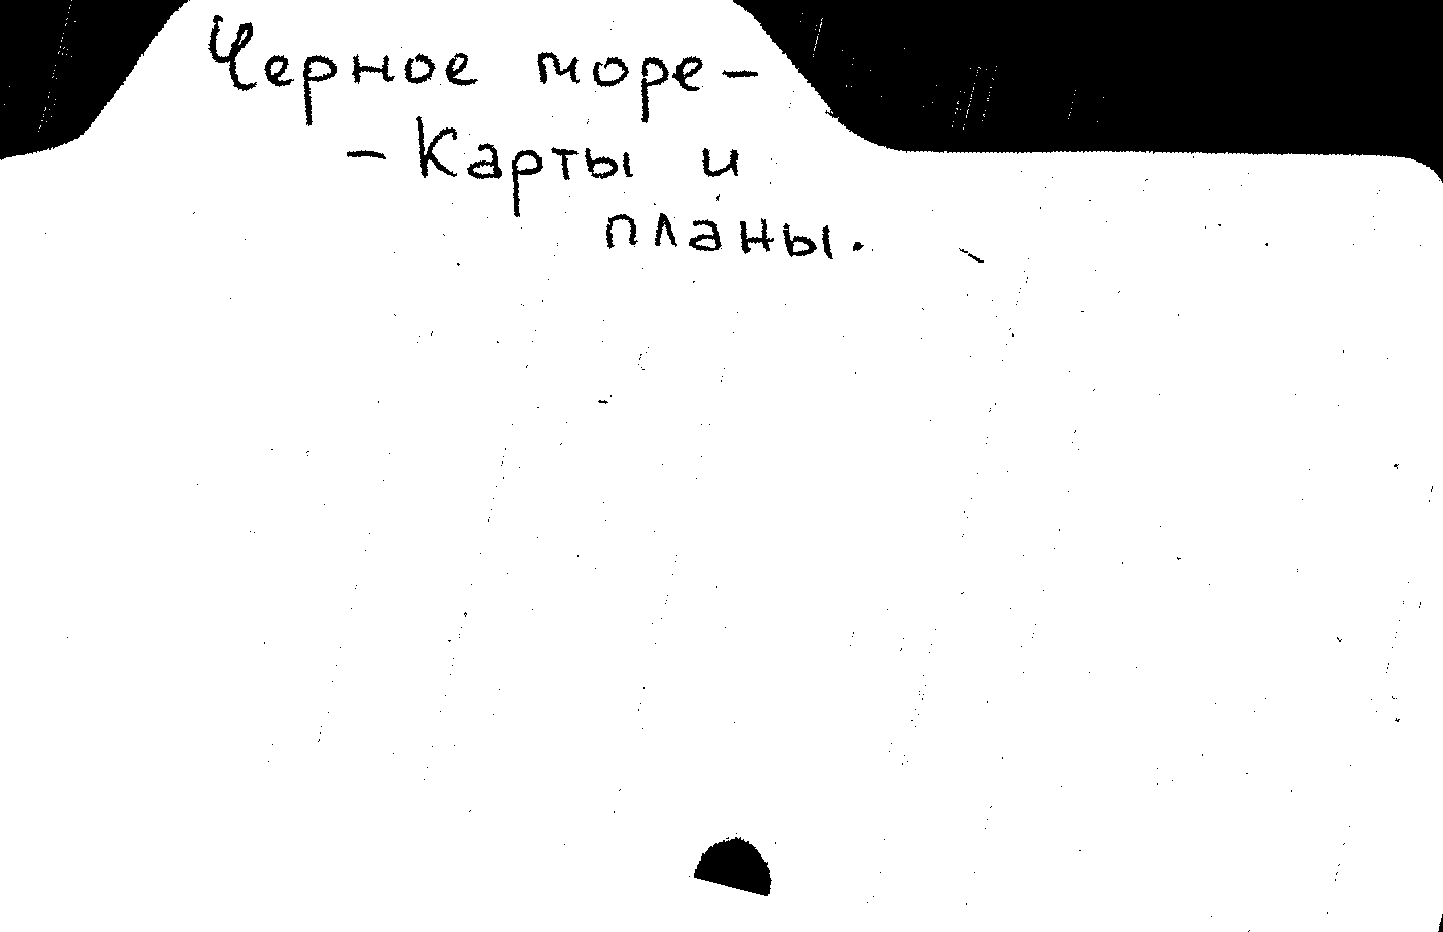 Черное море-
- Карты и
планы.